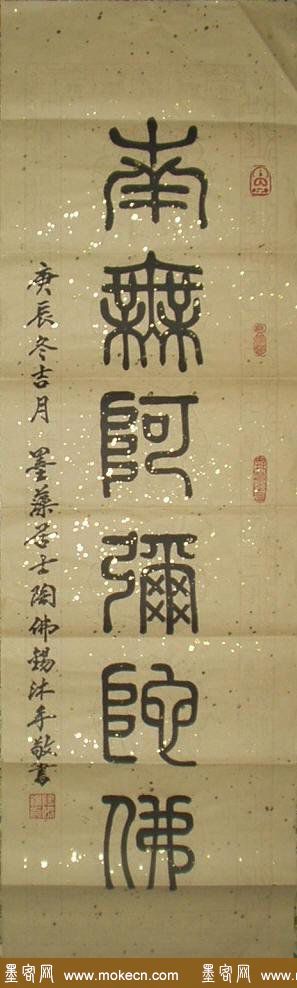 南無阿彌陀佛
庚辰冬吉月 墨藥居士陶佛錫沐手敬書
墨客网 www.mokecn.com 墨客网